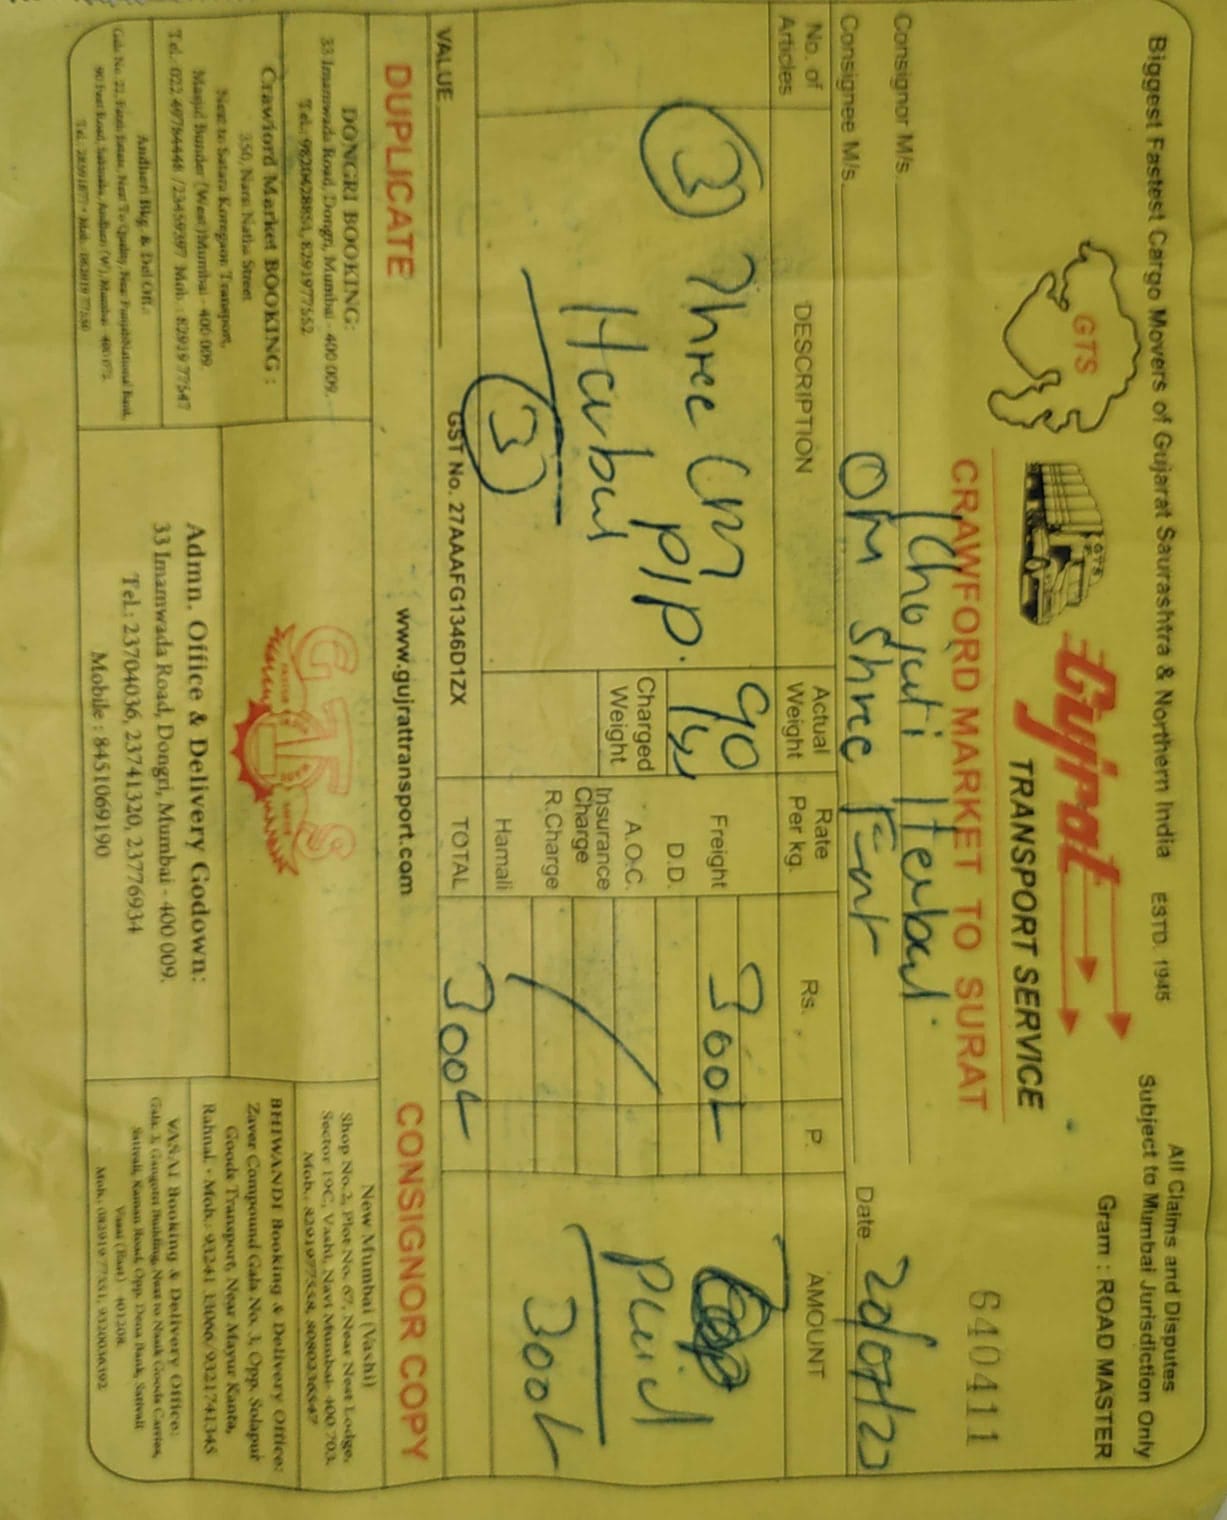 Biggest Fastest Cargo Movers of Gujarat Saurashtra & Northern India ESTD. 1945
All Claims and Disputes
Subject to Mumbai Jurisdiction Only
Gram : ROAD MASTER
GTS
GTS
Gujrat
TRANSPORT SERVICE
CRAWFORD MARKET TO SURAT
640411
Consignor M/s.
Consignee M/s. OM Shree
Date
No. of Articles
DESCRIPTION
Actual Weight
Rate Per kg.
Rs.
P.
AMOUNT
3
Three
P/P.
90
Charged Weight
Freight
300/-
D.D.
A.O.C.
Insurance Charge
R.Charge
Hamali
Paid
300/-
3
VALUE
GST No. 27AAAFG1346D1ZX
TOTAL
300/-
DUPLICATE
www.gujrattransport.com
CONSIGNOR COPY
DONGRI BOOKING:
33 Imamwada Road, Dongri, Mumbai - 400 009.
Tel.: 9820428851, 8291977552
Crawford Market BOOKING :
350, Narsi Natha Street
Next to Satara Koregaon Transport,
Masjid Bunder (West) Mumbai - 400 009.
Tel.: 022 49784448 / 23459397 Mob. : 82919 77547
Andheri Bkg. & Del Off.:
GTS
Admn. Office & Delivery Godown:
33 Imamwada Road, Dongri, Mumbai - 400 009.
Tel.: 23704036, 23741320, 23776934
Mobile : 8451069190
New Mumbai (Vashi)
Shop No.2, Plot No. 67, Near Neat Lodge,
Sector 19C, Vashi, Navi Mumbai- 400 703.
BHIWANDI Booking & Delivery Office:
Zaver Compound Gala No. 3, Opp. Solapur
Goods Transport, Near Mayur Kanta,
Rahnal. - Mob.: 93241 13066/ 9321741345
VASAI Booking & Delivery Office:
Gala. 3, Gangotri Building, Next to Naik Goods Carrier,
Sativali, Kaman Road, Opp. Dena Bank, Sativali
Vasai (East) - 401208.